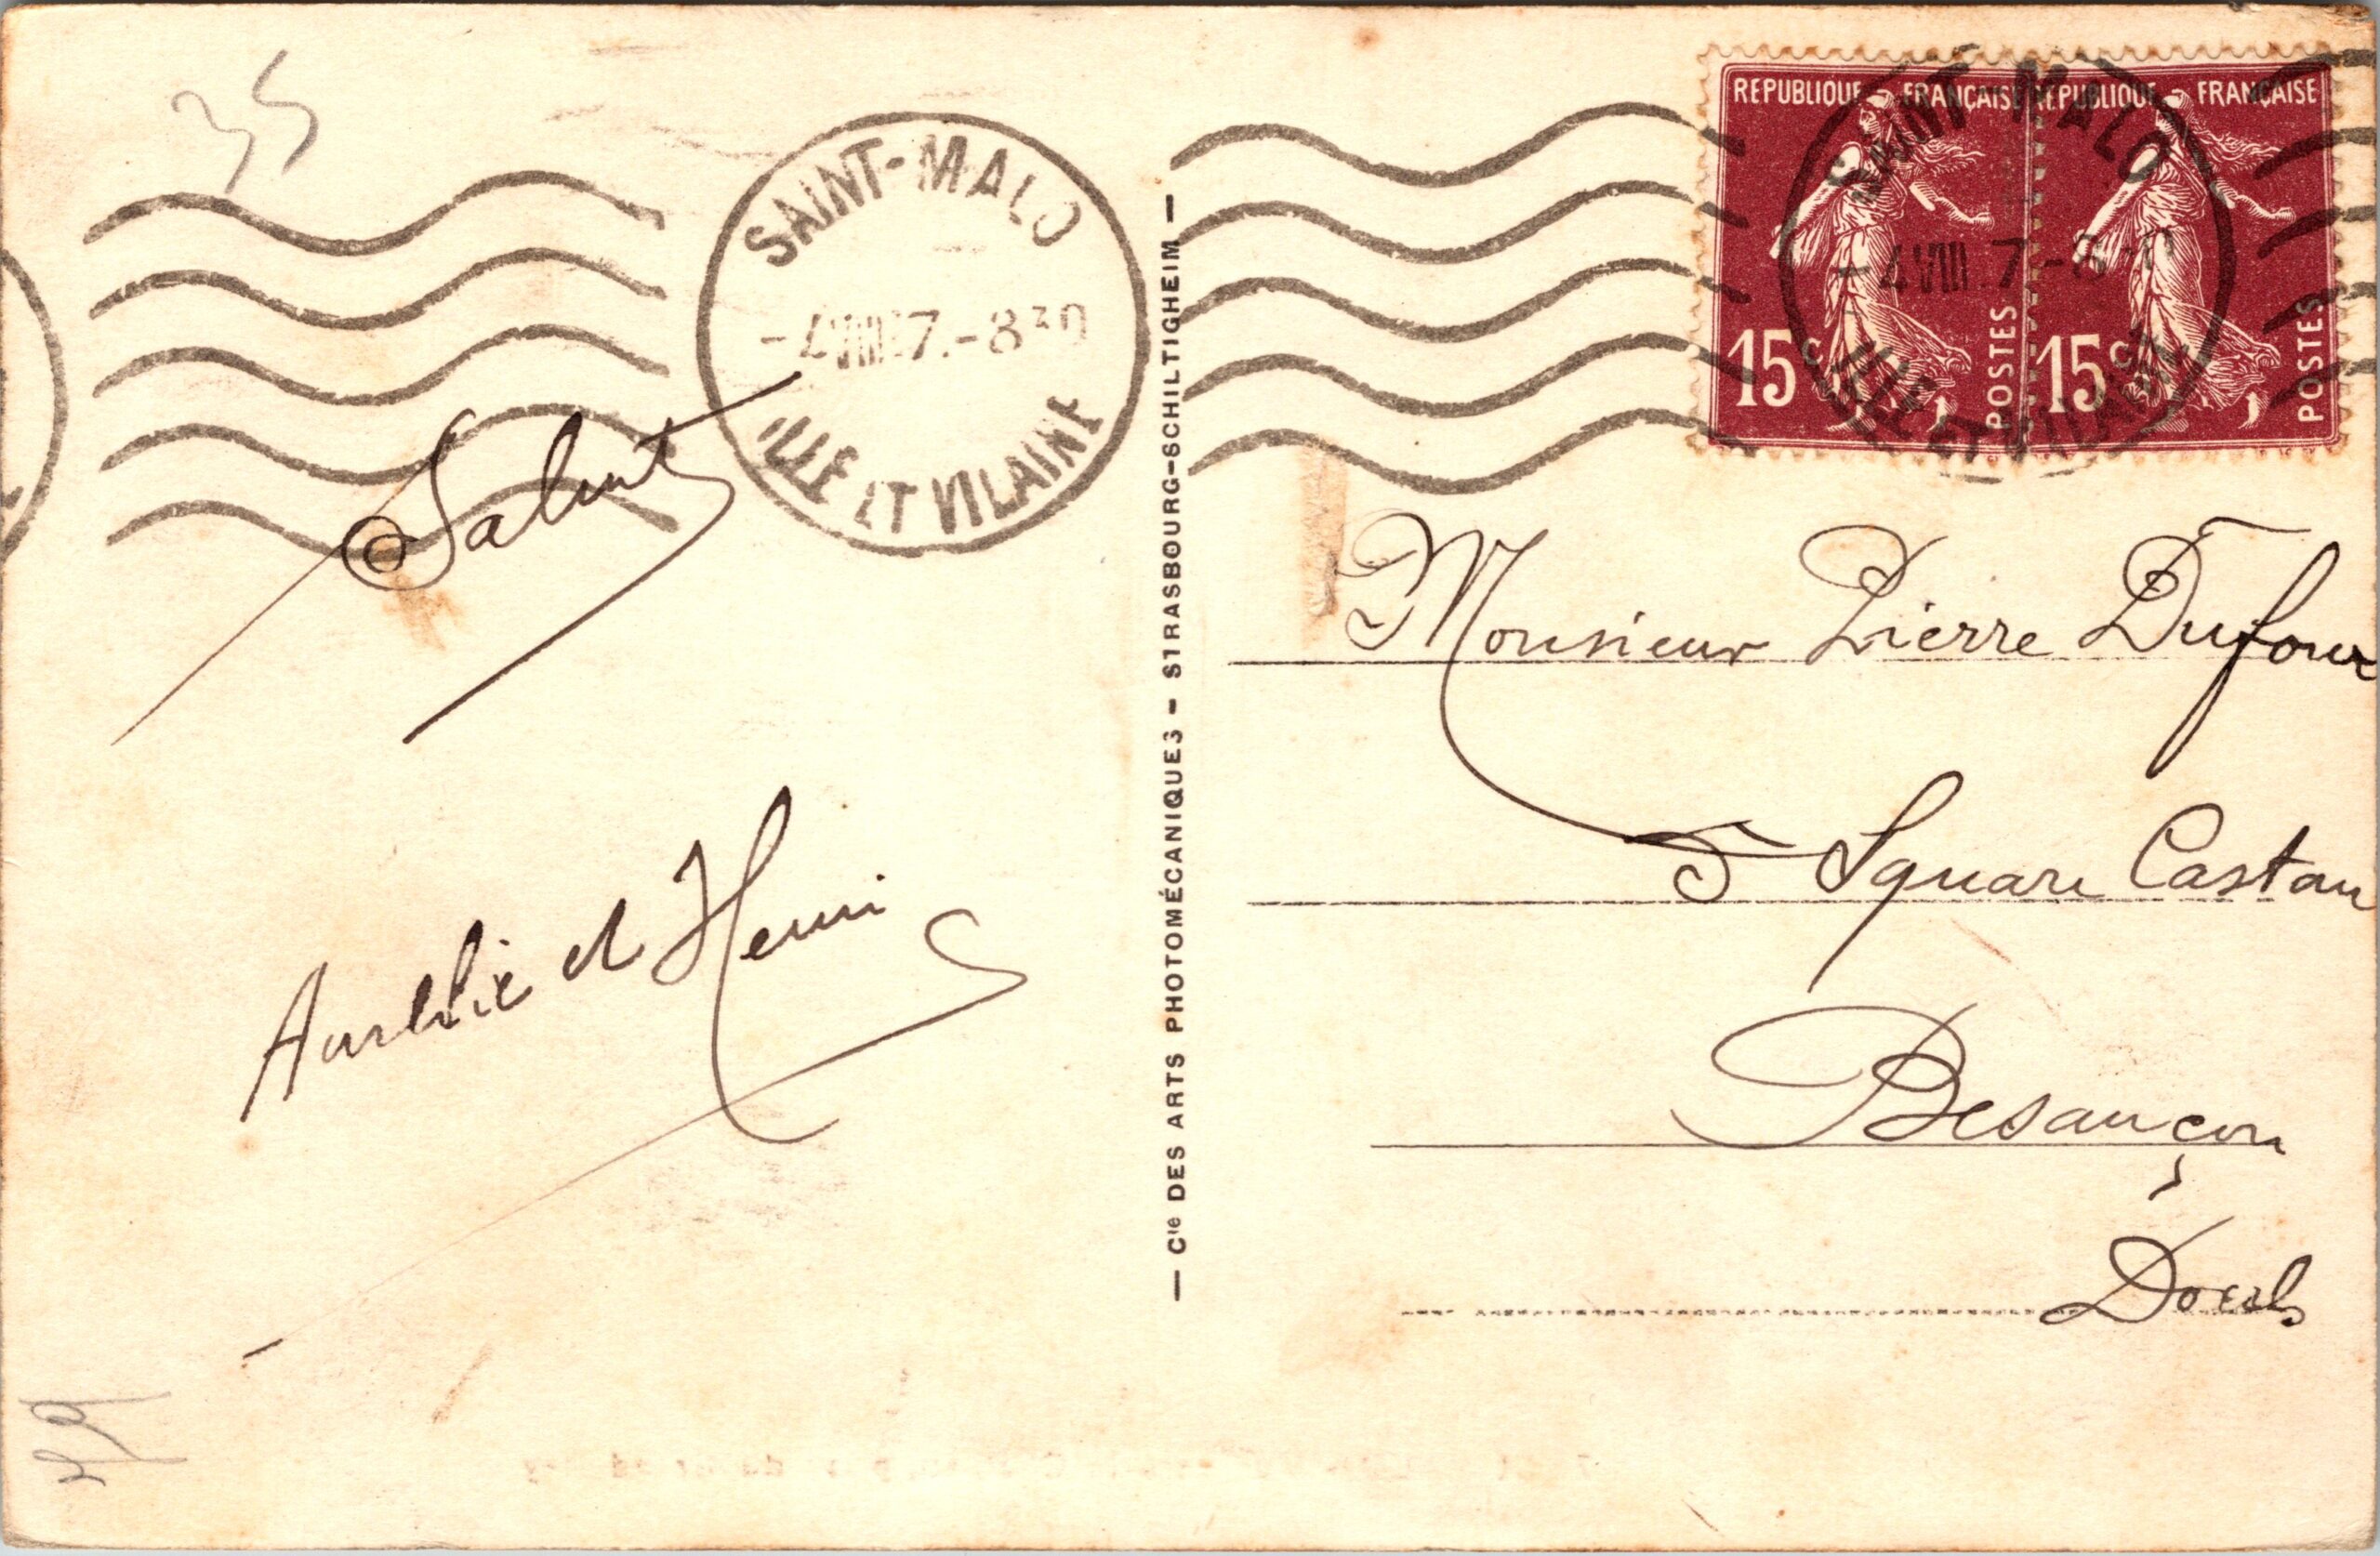 35
SAINT-MALO
-4 VIII 7.-8 30
ILLE ET VILAINE
REPUBLIQUE FRANÇAISE
15c POSTES
REPUBLIQUE FRANÇAISE
15c POSTES
SAINT-MALO
-4 VIII 7-8
ILLE ET VILAINE
Salut
Aurélie et Henri
— Cie DES ARTS PHOTOMÉCANIQUES - STRASBOURG-SCHILTIGHEIM —
Monsieur Pierre Dufour
5 Square Castan
Besançon
Doubs